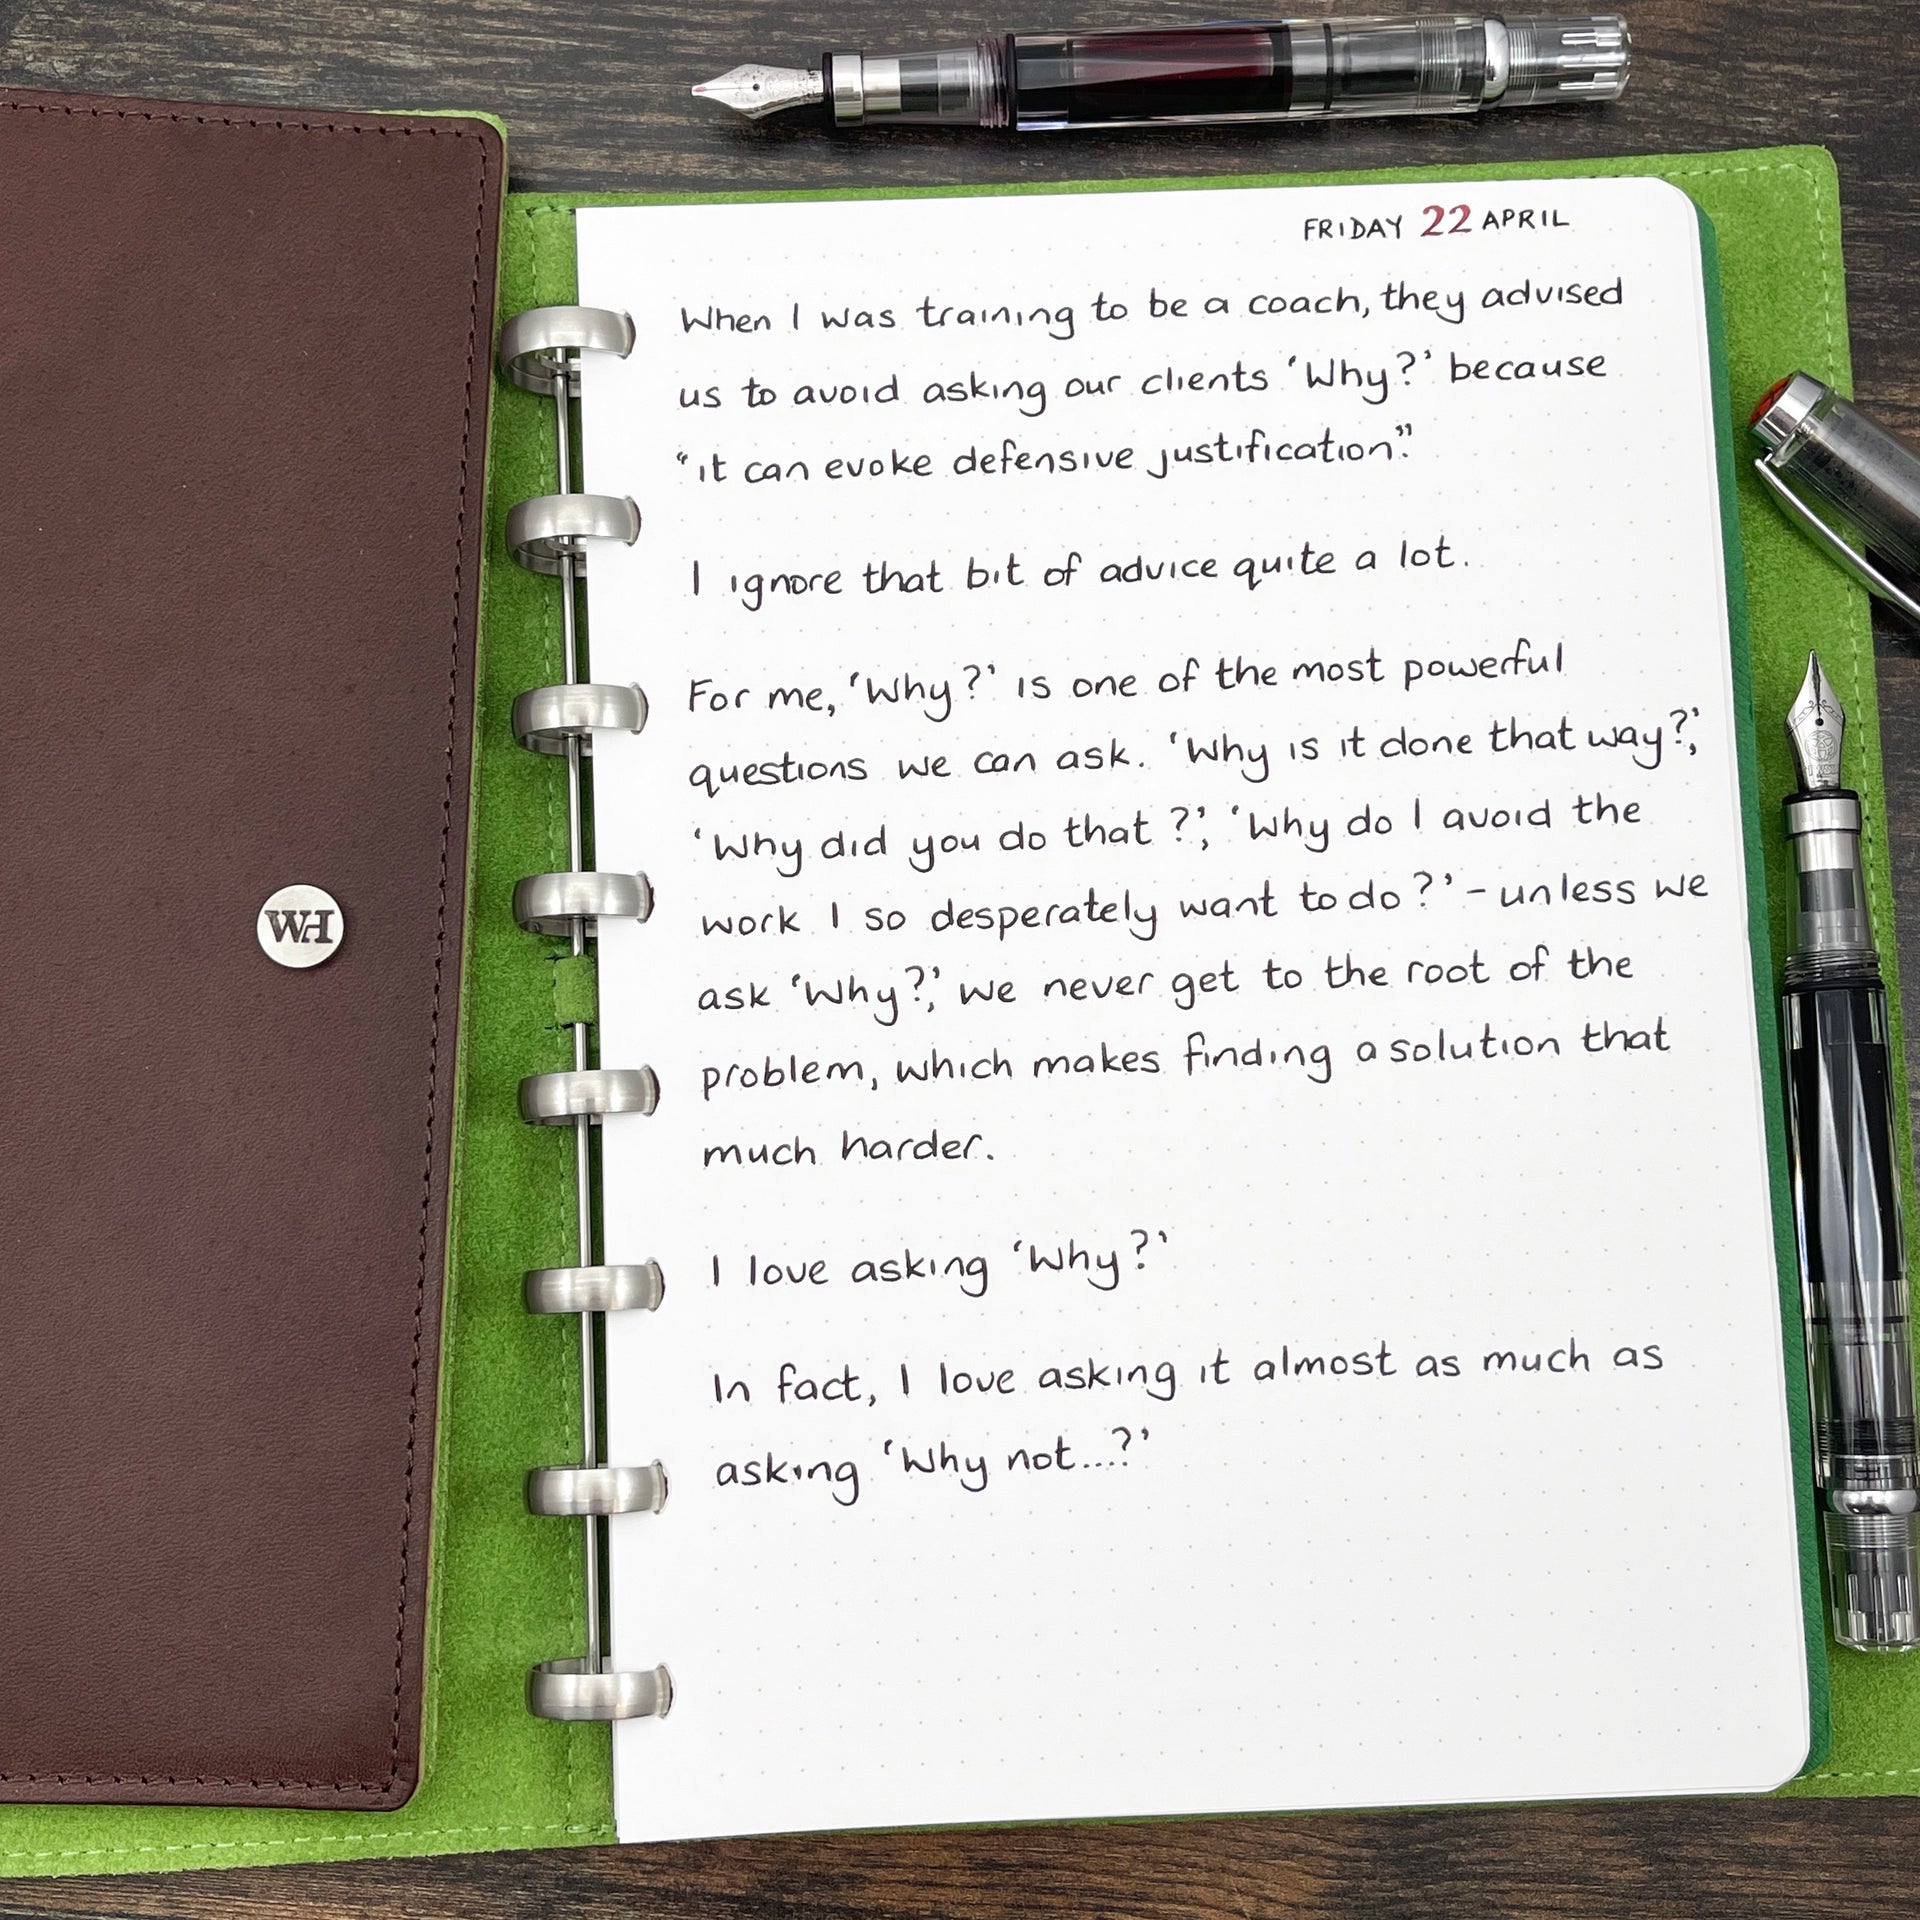 FRIDAY 22 APRIL
When I was training to be a coach, they advised
us to avoid asking our clients 'Why?' because
"it can evoke defensive justification".
I ignore that bit of advice quite a lot.
For me, 'Why?' is one of the most powerful
questions we can ask. 'Why is it done that way?',
'Why did you do that?', 'Why do I avoid the
work I so desperately want to do?' - unless we
ask 'Why?', we never get to the root of the
problem, which makes finding a solution that
much harder.
I love asking 'Why?'
In fact, I love asking it almost as much as
asking 'Why not...?'
WH